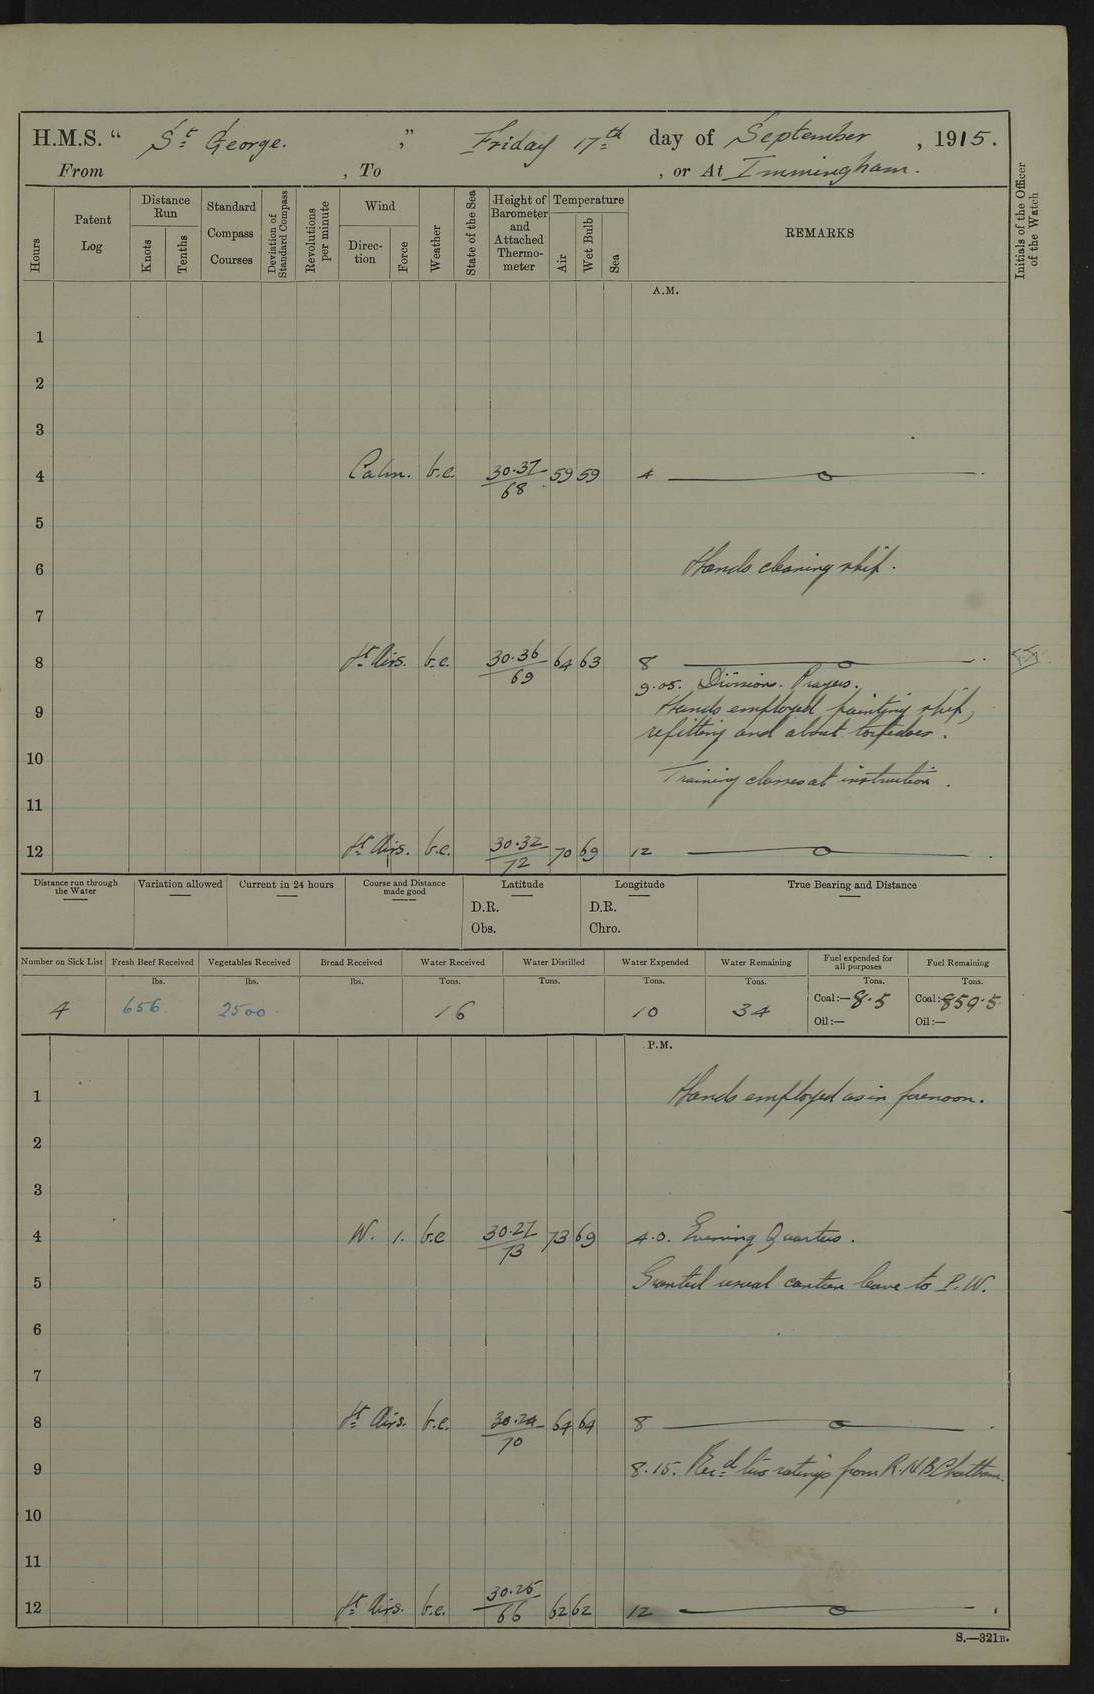 H.M.S. “ St George. ” Friday 17th day of September, 1915.
From , To , or At Immingham.
Hours
Patent Log
Distance Run
Knots
Tenths
Standard Compass Courses
Deviation of Standard Compass
Revolutions per minute
Wind
Direc-tion
Force
Weather
State of the Sea
Height of Barometer and Attached Thermo-meter
Temperature
Air
Wet Bulb
Sea
REMARKS
Initials of the Officer of the Watch
A.M.
1
2
3
4 Calm. b.c. 30.37/68 59 59 4
5
6 Hands cleaning ship.
7
8 Lt Airs. b.c. 30.36/69 64 63 8
9.05. Divisions. Prayers.
9 Hands employed painting ship,
refitting and about torpedoes.
10
Training classes at instruction.
11
12 Lt Airs. b.c. 30.32/72 70 69 12
Distance run through the Water
Variation allowed
Current in 24 hours
Course and Distance made good
Latitude
D.R.
Obs.
Longitude
D.R.
Chro.
True Bearing and Distance
Number on Sick List
Fresh Beef Received
Vegetables Received
Bread Received
Water Received
Water Distilled
Water Expended
Water Remaining
Fuel expended for all purposes
Fuel Remaining
lbs. lbs. lbs. Tons. Tons. Tons. Tons. Tons. Tons.
4 656 2500 16 10 34 Coal:—8.5 Coal:—859.5
Oil:— Oil:—
P.M.
1 Hands employed as in forenoon.
2
3
4 W. 1. b.c 30.27/73 73 69 4.0. Evening Quarters.
5 Granted usual canteen leave to P.W.
6
7
8 Lt Airs. b.c. 30.24/70 64 64 8
9 8.15. Recd two ratings from R.N.B. Chatham.
10
11
12 Lt Airs. b.c. 30.25/66 62 62 12
S.—321B.